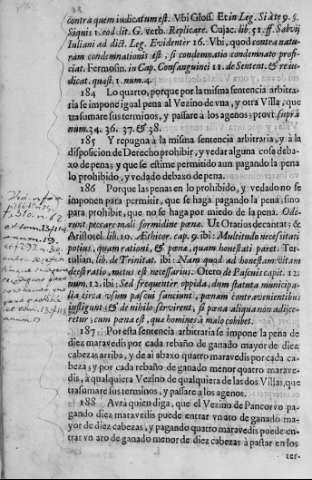 contra quem iudicatum est. Vbi Glos. Et in Leg. Si à te 9. §.
Siquis 1. eod. tit. G. verb. Replicare. Cujac. lib. 51. ff. Salvij
Iuliani ad dict. Leg. Evidenter 16. Vbi, quod contra natu-
ram condemnationis est, si condemnatio condemnato profi-
ciat. Fermosin. in Cap. Consanguinei 11. de Sentent. & re iu-
dicat. quæst. 1. num. 4.
184 Lo quarto, porque por la misma sentencia arbitra-
ria se impone igual pena al Vezino de vna, y otra Villa, que
trasumare sus terminos, y passare à los agenos: provt suprà
num. 34. 36. 37. & 38.
185 Y repugna à la misma sentencia arbitraria, y à la
disposicion de Derecho prohibir, y vedar alguna cosa deba-
xo de pena; y que se estime permitido aun pagando la pena
lo prohibido, y vedado debaxo de pena.
186 Porque las penas en lo prohibido, y vedado no se
imponen para permitir, que se haga pagando la pena, sino
para prohibir, que no se haga por miedo de la pena. Ode-
runt peccare mali formidine pœnæ. Vt Oratius decantat: &
Aristotel. lib. 10. Æthicor. cap. 9. ibi: Multitudo necessitati
potius, quam rationi, & pœna, quam honestati paret. Ter-
tulian. lib. de Trinitat. ibi: Nam quod ad honestam vitam
deest ratio, metus est necessarius. Otero de Pascuis capit. 12.
num. 12. ibi: Sed frequenter oppida, dum statuta municipa-
lia circa vsum pascui sanciunt, pœnam contravenientibus
infligunt: & de nihilo servirent, si pœna aliqua non adijce-
retur: cum pœna est, quæ homines à malo cohibet.
187 Por esta sentencia arbitraria se impone la pena de
diez maravedis por cada rebaño de ganado mayor de diez
cabezas arriba, y de ai abaxo quatro maravedis por cada ca-
beza; y por cada rebaño de ganado menor quatro marave-
dis, à qualquiera Vezino de qualquiera de las dos Villas, que
trasumare sus terminos, y passare à los agenos.
188 Avrà quien diga, que el Vezino de Pancorvo pa-
gando diez maravedis puede entrar vn ato de ganado ma-
yor de diez cabezas, y pagando quatro maravedis puede en-
trar vn ato de ganado menor de diez cabezas à pastar en los
ter-